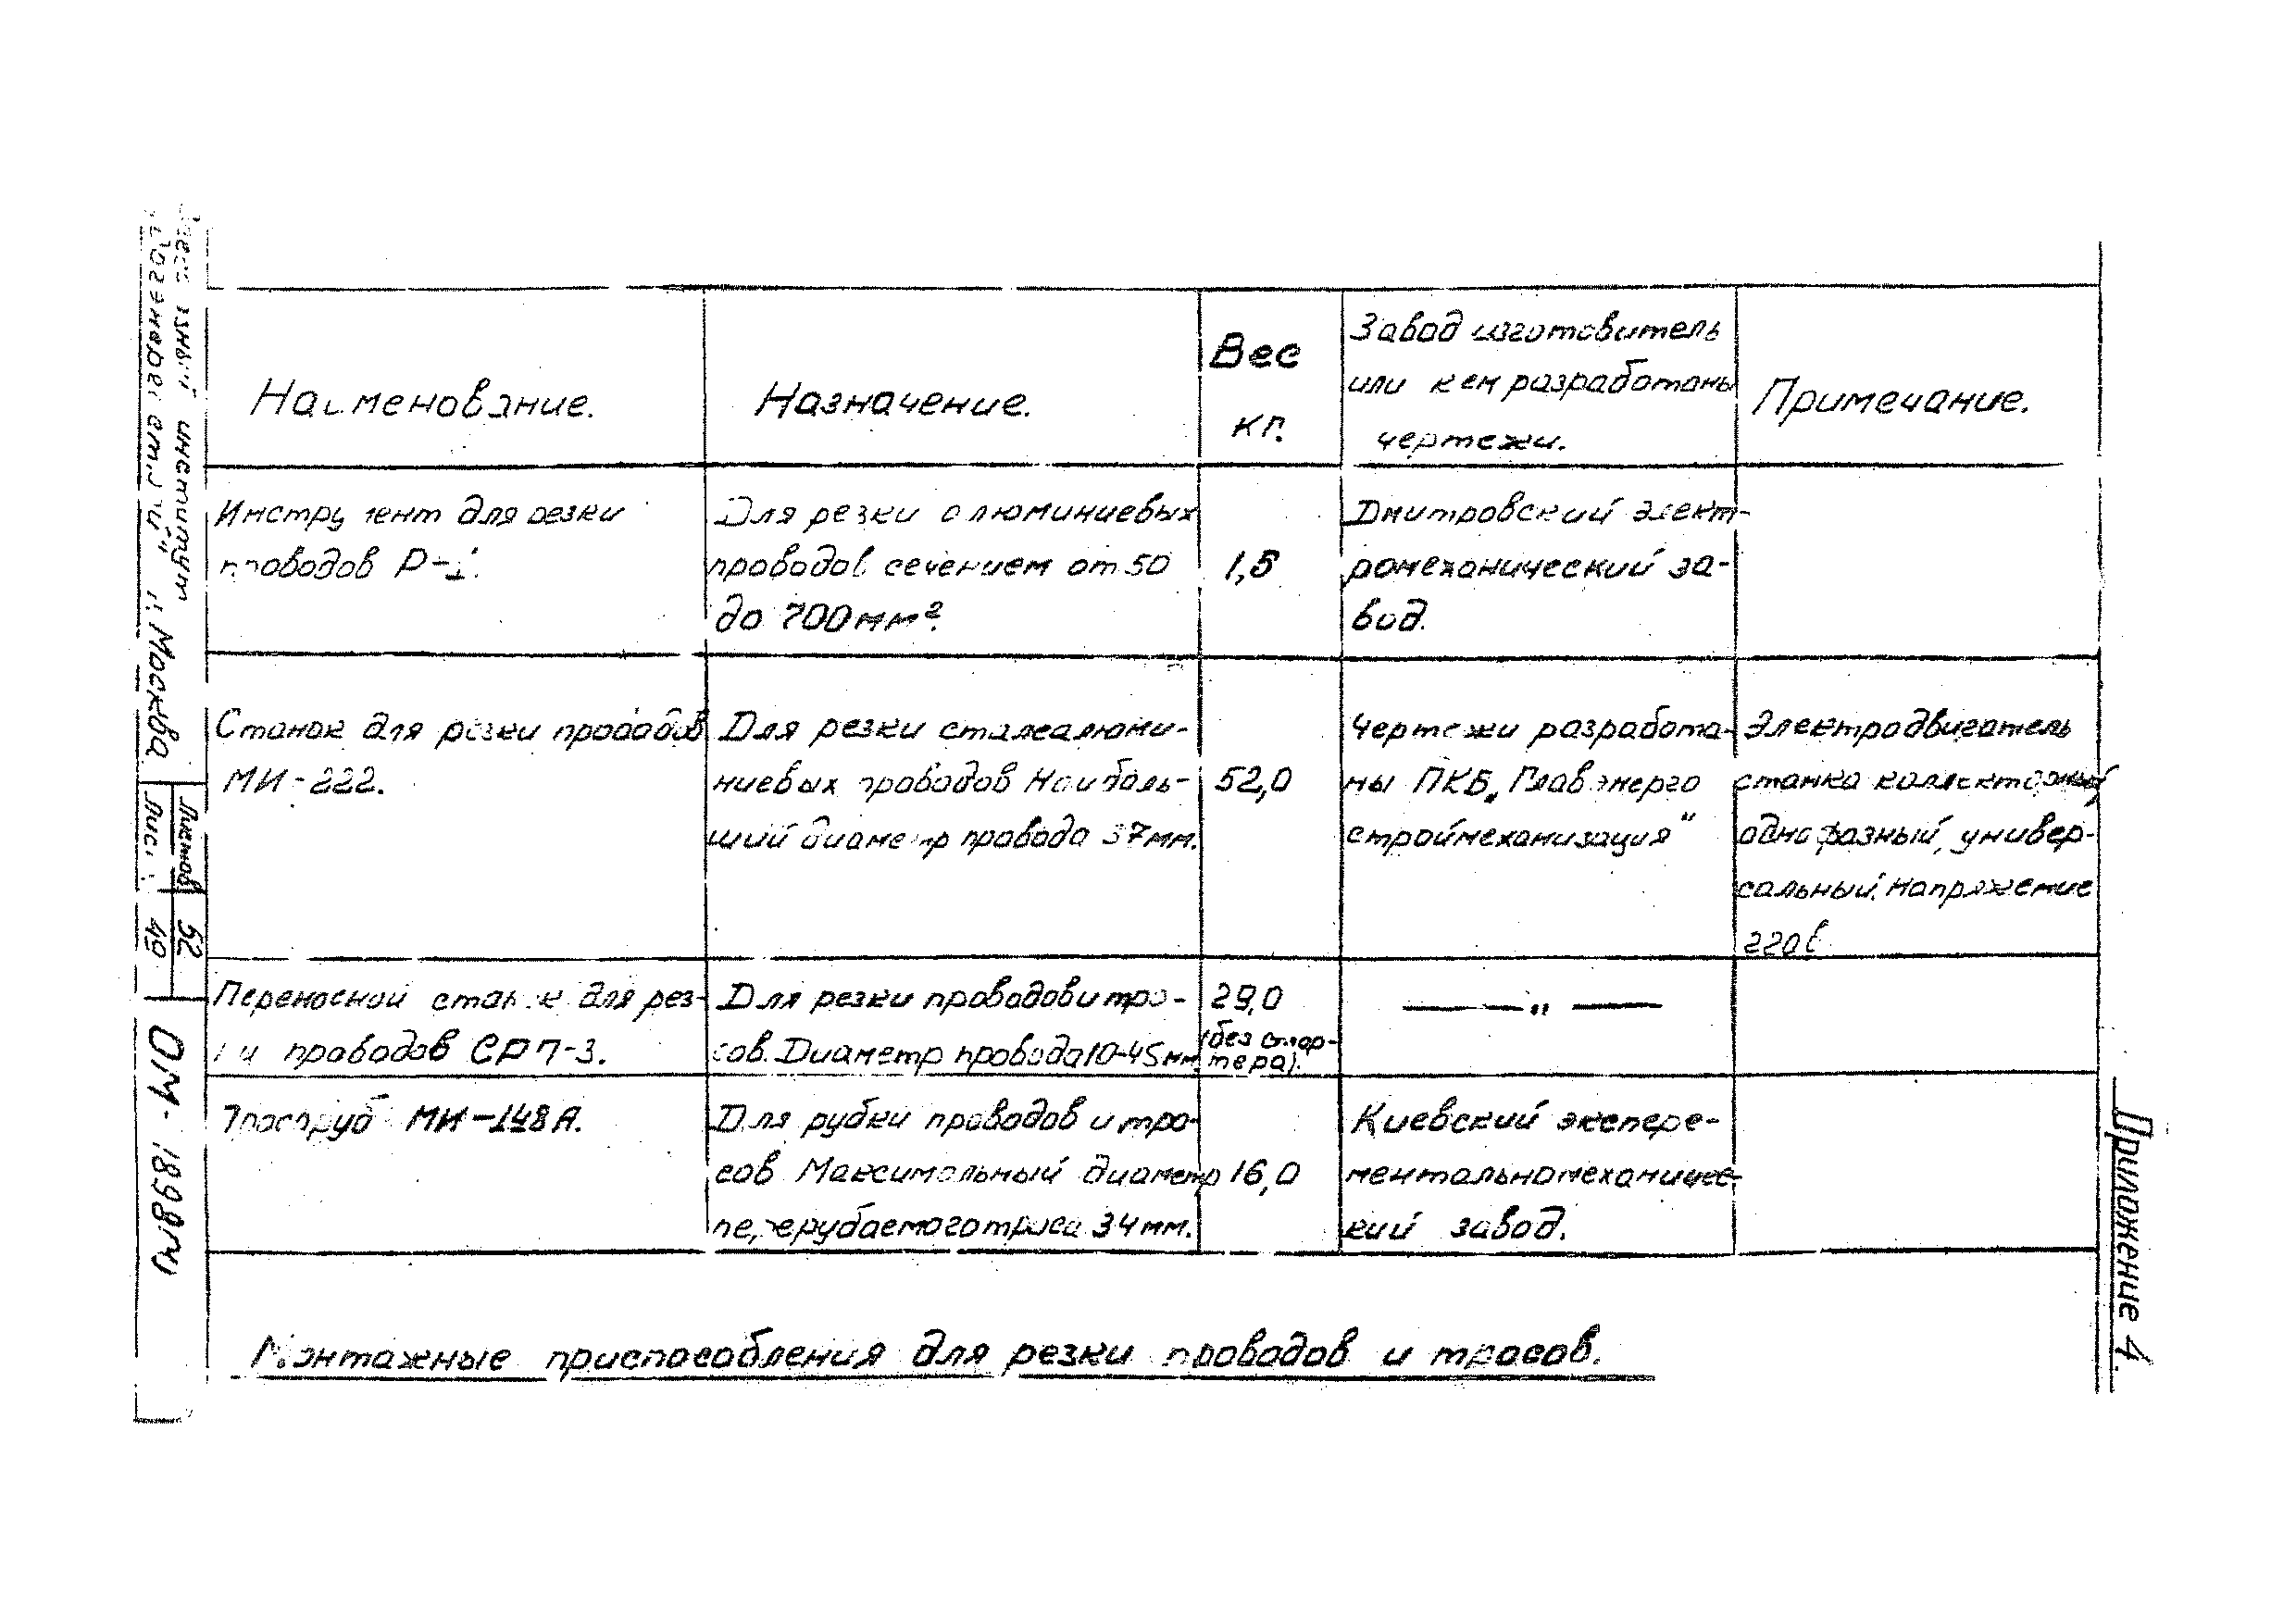 Приложение 4.
Наименование.
Назначение.
Вес
кг.
Завод изготовитель
или кем разработаны
чертежи.
Примечание.
Инструмент для резки
проводов Р-1.
Для резки алюминиевых
проводов сечением от 50
до 700 мм².
1,5
Дмитровский элект-
ромеханический за-
вод.
Станок для резки проводов
МИ-222.
Для резки сталеалюми-
ниевых проводов Наиболь-
ший диаметр провода 37мм.
52,0
Чертежи разработа-
ны ПКБ „Главэнерго
строймеханизация"
Электродвигатель
станка коллекторный
однофазный, универ-
сальный. Напряжение
220в
Переносной станок для рез-
ки проводов СРП-3.
Для резки проводов и тро-
сов. Диаметр провода 10-45мм.
29,0
(без
тера).
— " —
Тросоруб МИ-148А.
Для рубки проводов и тро-
сов Максимальный диаметр
перерубаемого троса 34мм.
16,0
Киевский экспере-
ментальномеханичес-
кий завод.
Монтажные приспособления для резки проводов и тросов.
институт
г. Москва
Листов 52
Лис. 49
ОМ-1898тм